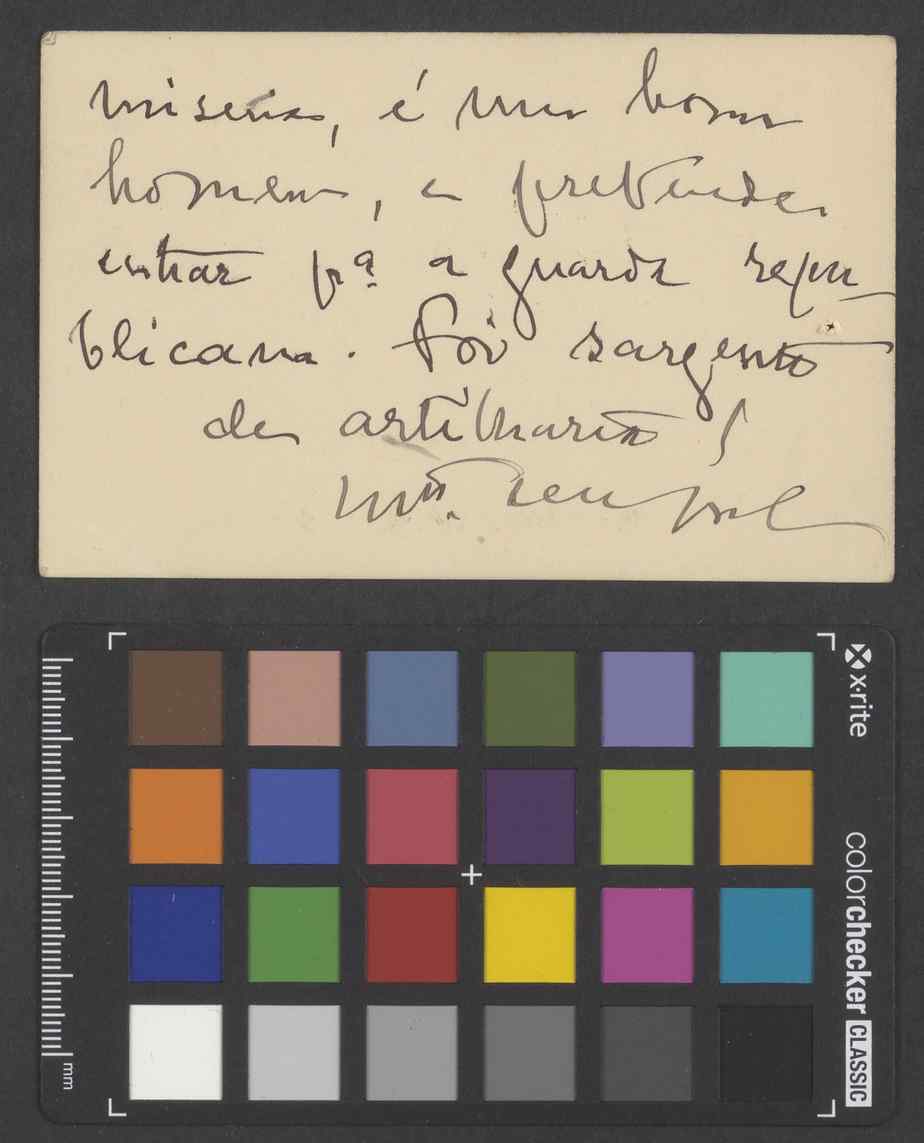 miseria, é um bom
homem, e pretende
entrar pª a guarda repu
blicana. Foi sargento
de artilharia
x·rite
colorchecker CLASSIC
mm